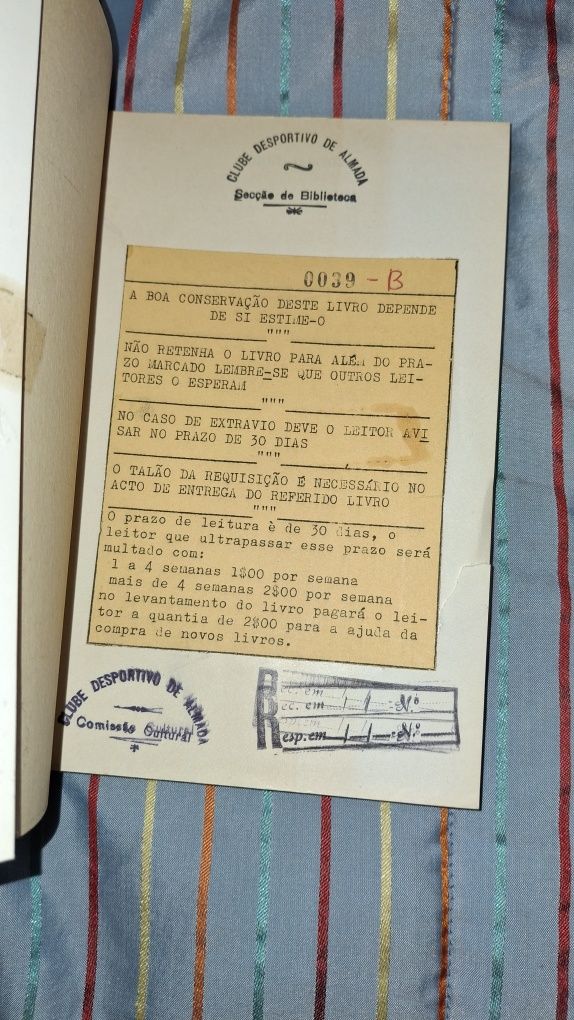 CLUBE DESPORTIVO DE ALMADA
Secção de Biblioteca
0039 - B
A BOA CONSERVAÇÃO DESTE LIVRO DEPENDE
DE SI ESTIME-O
"""
NÃO RETENHA O LIVRO PARA ALÉM DO PRA-
ZO MARCADO LEMBRE-SE QUE OUTROS LEI-
TORES O ESPERAM
"""
NO CASO DE EXTRAVIO DEVE O LEITOR AVI
SAR NO PRAZO DE 30 DIAS
"""
O TALÃO DA REQUISIÇÃO É NECESSÁRIO NO
ACTO DE ENTREGA DO REFERIDO LIVRO
"""
O prazo de leitura è de 30 dias, o
leitor que ultrapassar esse prazo será
multado com:
1 a 4 semanas 1$00 por semana
mais de 4 semanas 2$00 por semana
no levantamento do livro pagará o lei-
tor a quantia de 2$00 para a ajuda da
compra de novos livros.
CLUBE DESPORTIVO DE ALMADA
Comissão Cultural
Rec. em / / Nº
Resp. em / / Nº